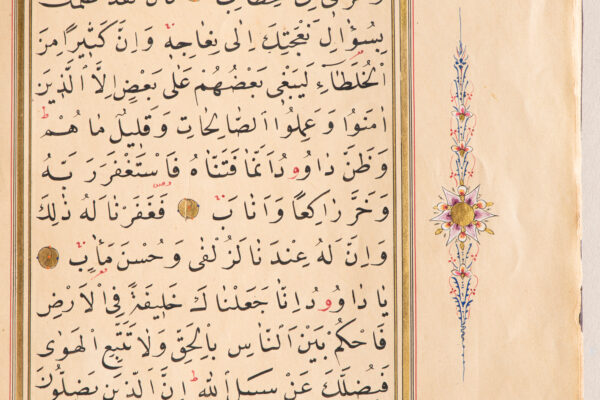 وَعَزَّنِى فِى الْخِطَابِ قَالَ لَقَدْ ظَلَمَكَ
بِسُؤَالِ نَعْجَتِكَ اِلٰى نِعَاجِهٖ وَاِنَّ كَثِيرًا مِنَ
الْخُلَطَٓاءِ لَيَبْغِى بَعْضُهُمْ عَلٰى بَعْضٍ اِلَّا الَّذِينَ
اٰمَنُوا وَعَمِلُوا الصَّالِحَاتِ وَقَلِيلٌ مَا هُمْ ط
وَظَنَّ دَاوُودُ اَنَّمَا فَتَنَّاهُ فَاسْتَغْفَرَ رَبَّهُ
وَخَرَّ رَاكِعًا وَاَنَابَ فَغَفَرْنَا لَهُ ذٰلِكَ
وَاِنَّ لَهُ عِنْدَنَا لَزُلْفٰى وَحُسْنَ مَاٰبٍ
يَا دَاوُودُ اِنَّا جَعَلْنَاكَ خَلِيفَةً فِى الْاَرْضِ
فَاحْكُمْ بَيْنَ النَّاسِ بِالْحَقِّ وَلَا تَتَّبِعِ الْهَوٰى
فَيُضِلَّكَ عَنْ سَبِيلِ اللهِ ط اِنَّ الَّذِينَ يَضِلُّونَ